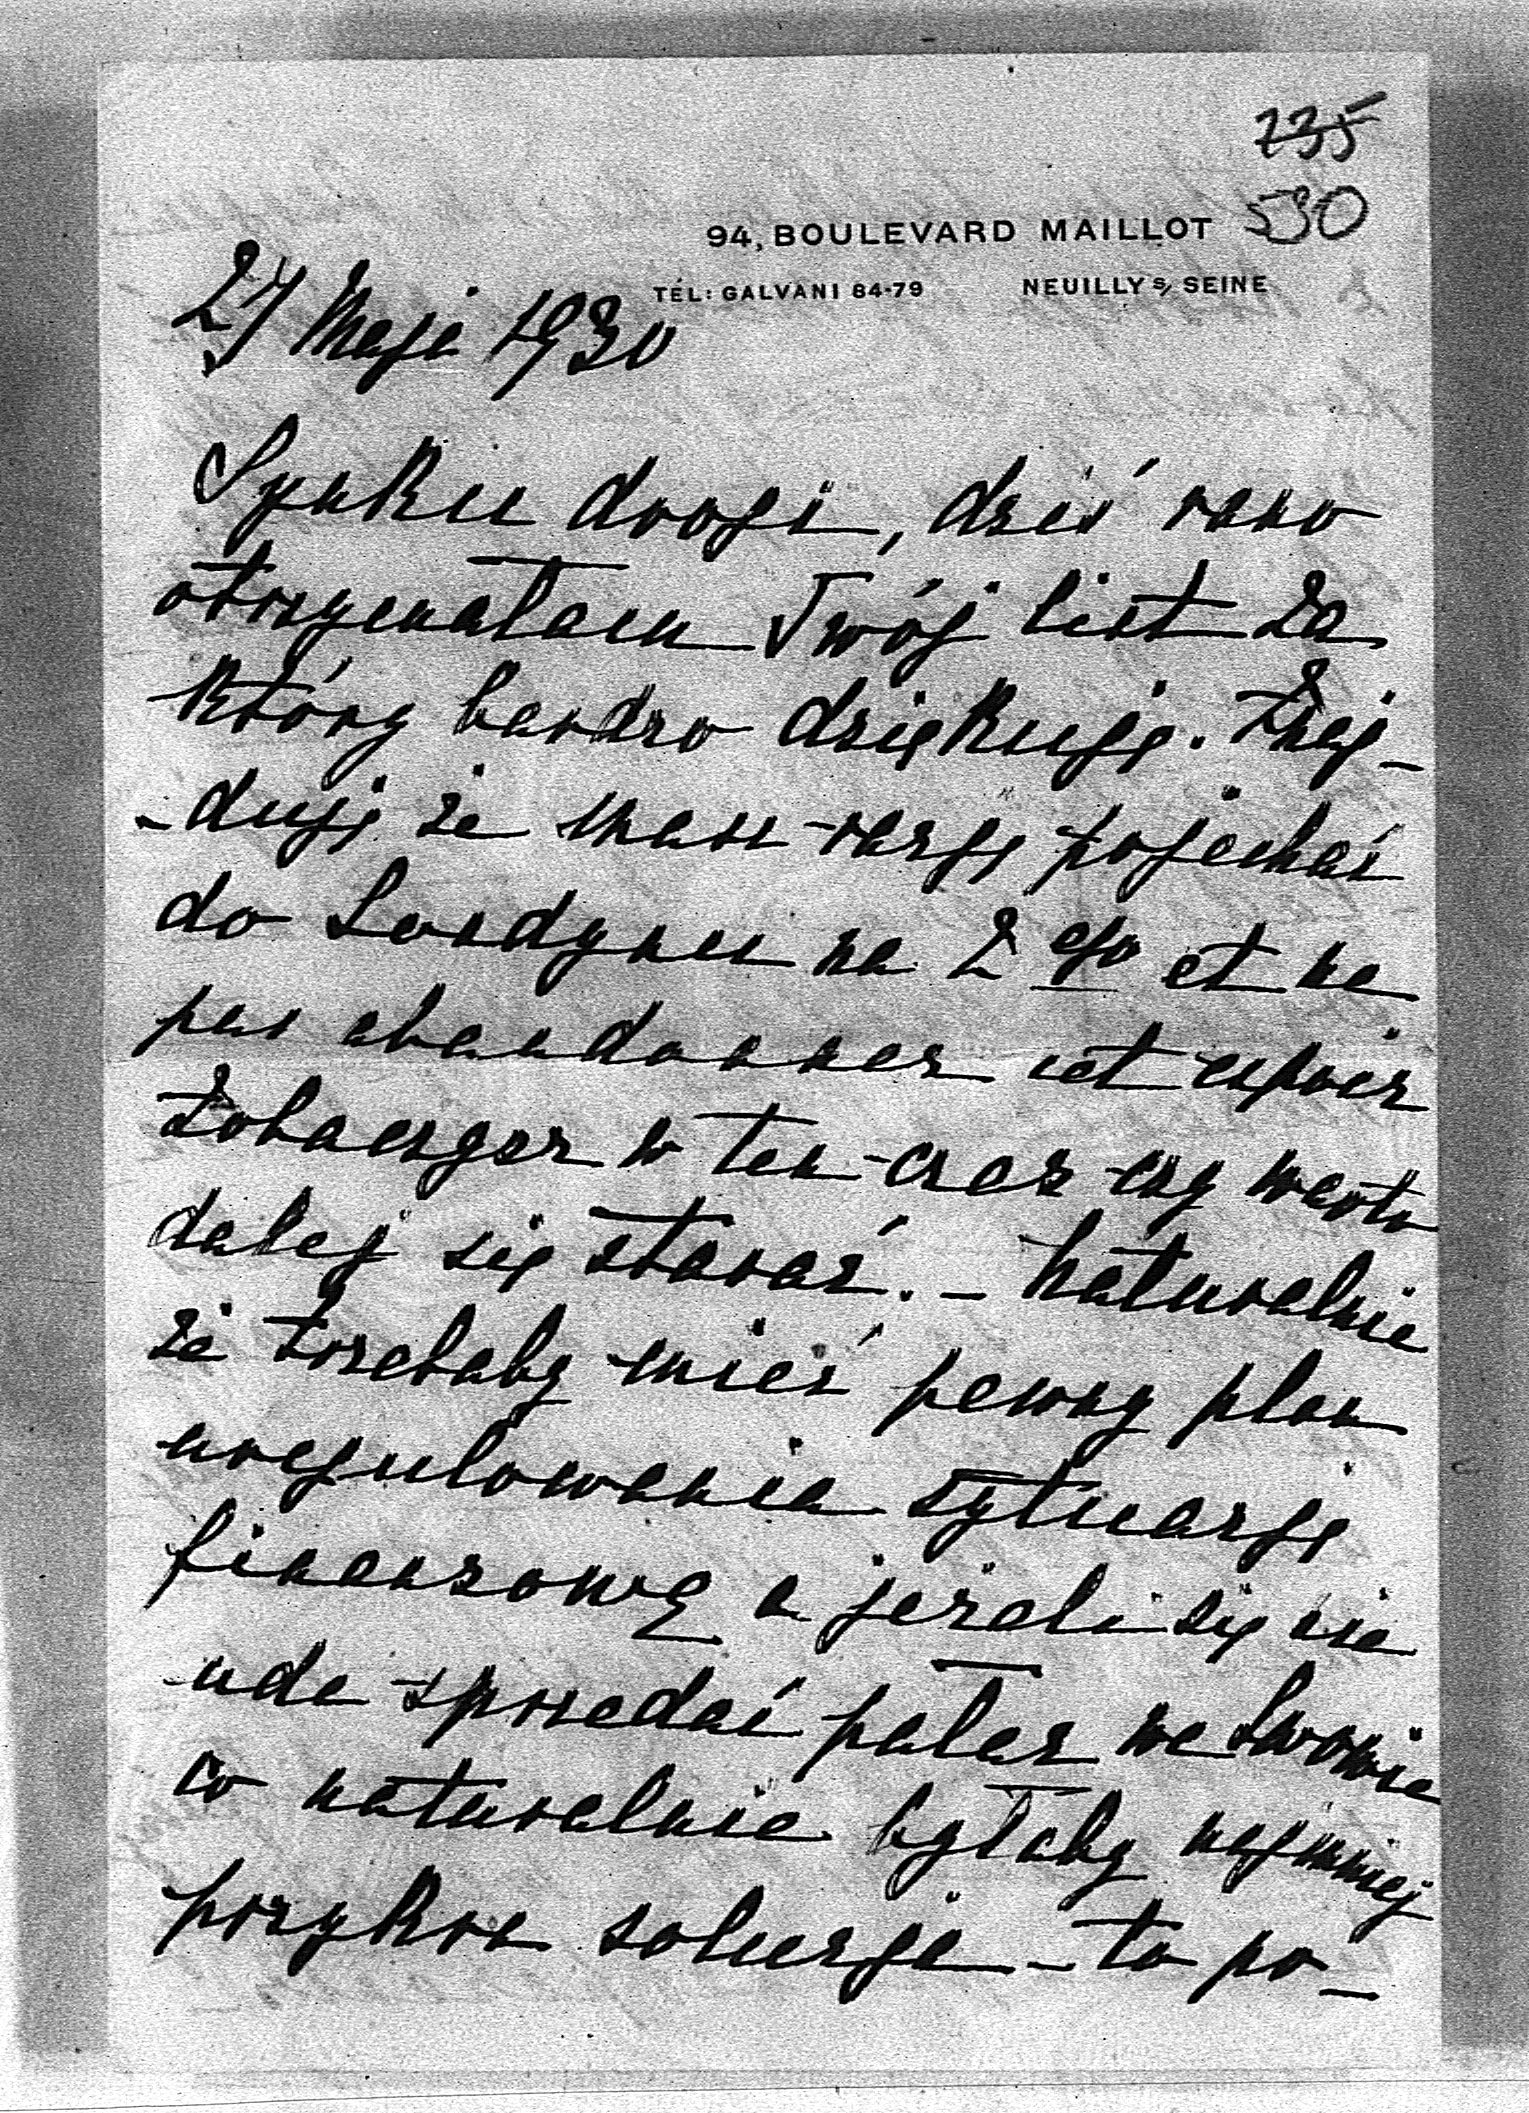 735
530
94, BOULEVARD MAILLOT
TÉL: GALVANI 84-79 NEUILLY S/ SEINE
27 Maja 1930
Synku drogi, dziś rano
otrzymałam Twój list za
który bardzo dziękuję. Znaj-
-duję że masz racyę pojechać
do Londynu na 2 go et ne
pas abandonner cet espoir
Zobaczysz w ten czas czy warto
dalej się starać. - Naturalnie
że trzebaby mieć pewny plan
uregulowania sytuacyę
finanzową a jeżeli się nie
uda sprzedać pałac we Lwowie
co naturalnie byłaby najmniej
przykra solucja - to po-